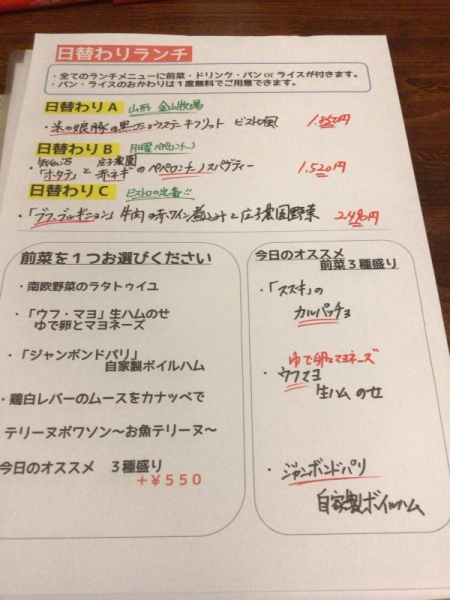 日替わりランチ
・全てのランチメニューに前菜・ドリンク・パン or ライスが付きます。
・パン・ライスのおかわりは１度無料でご用意できます。
日替わり A 山形 金山牧場
・米の娘豚の黒コショウステーキフリット ビストロ風
日替わり B 月曜ペペロンチーノ
「ホタテ」と 庄子農園 赤ネギのペペロンチーノスパゲティー 1.520円
日替わり C ビストロの定番!!
・「ブフ・ブルギニョン」牛肉の赤ワイン煮込みと庄子農園野菜 2.480円
前菜を１つお選びください
・南欧野菜のラタトゥイユ
・「ウフ・マヨ」生ハムのせ
ゆで卵とマヨネーズ
・「ジャンボンドパリ」
自家製ボイルハム
・鶏白レバーのムースをカナッペで
テリーヌポワソン～お魚テリーヌ～
今日のオススメ ３種盛り
＋￥５５０
今日のオススメ
前菜３種盛り
・「スズキ」の
カルパッチョ
ゆで卵とマヨネーズ
・ウフマヨ
生ハムのせ
・ジャンボンドパリ
自家製ボイルハム